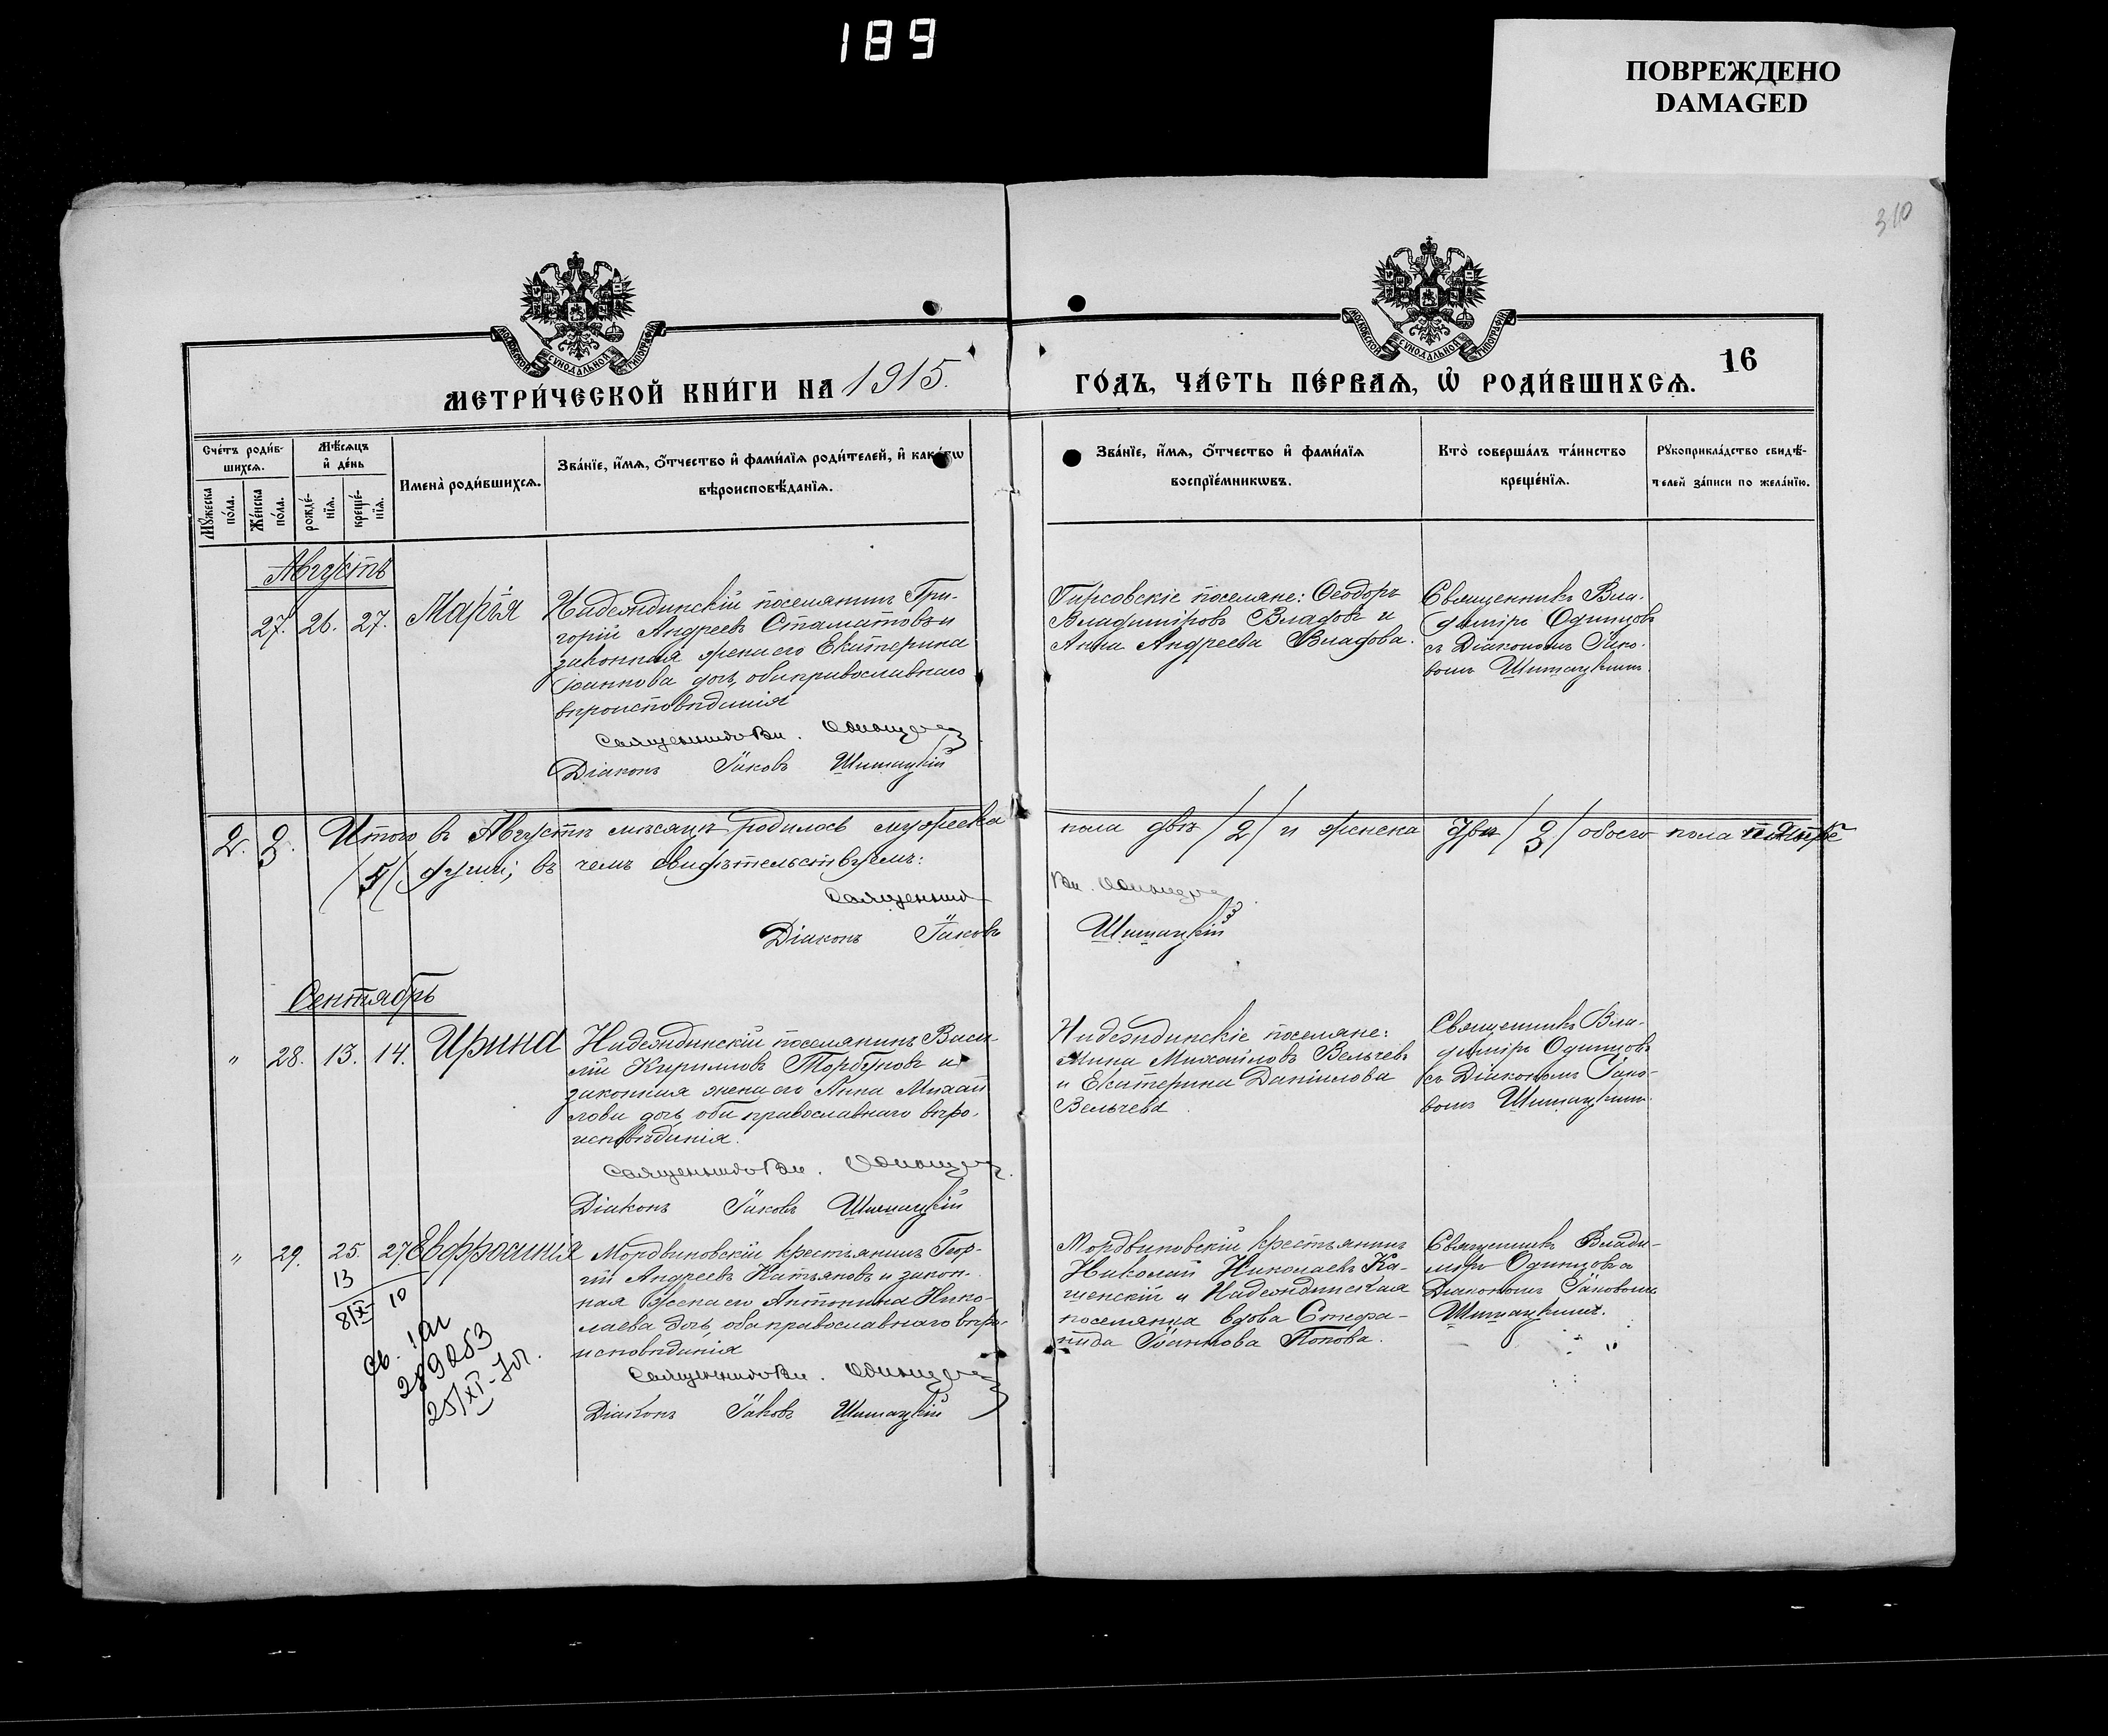 189
ПОВРЕЖДЕНО
DAMAGED
310
16
МЕТРИ́ЧЕСКОЙ КНИ́ГИ НА 1915.
ГО́ДЪ, ЧА́СТЬ ПЕ́РВАЯ, Ѡ҆ РОДИ́ВШИХСѦ.
Сче́тъ роди́в-
шихсѧ.
Мꙋ́жеска по́ла.
Же́нска по́ла.
Мѣ́сѧцъ
и҆ де́нь
рожде́-
нїѧ.
креще́-
нїѧ.
Имена̀ роди́вшихсѧ.
Зва́нїе, и҆́мѧ, ѻ҆́тчество и҆ фами́лїѧ роди́телей, и҆ како́гѡ
вѣроисповѣ́данїѧ.
Зва́нїе, и҆́мѧ, ѻ҆́тчество и҆ фами́лїѧ
воспрїе́мникѡвъ.
Кто̀ соверша́лъ та́инство
креще́нїѧ.
Рꙋкоприкла́дство свидѣ́-
телей за́писи по жела́нїю.
Августъ
27. 26. 27. Марія
Надеждинскій поселянинъ Гри-
горій Андреевъ Стаматовъ и
законная жена его Екатерина
Іоаннова дочь, оба православнаго
вѣроисповѣданія
Священникъ Вл. Одинцовъ
Діаконъ Іаковъ Шишацкій
Гирсовскіе поселяне: Ѳеодоръ
Владиміровъ Владовъ и
Анна Андреева Владова.
Священникъ Вла-
диміръ Одинцовъ
съ Діакономъ Іако-
вомъ Шишацкимъ
2. 3. Итого въ Августѣ мѣсяцѣ родилось мужеска пола двѣ /2/ и женска три /3/ обоего пола пять
/5/ душъ; въ чемъ свидѣтельствуемъ:
Священникъ Вл. Одинцовъ
Діаконъ Іаковъ Шишацкій
Сентябрь
" 28. 13. 14. Ирина
Надеждинскій поселянинъ Васи-
лій Кирилловъ Торбуновъ и
законная жена его Анна Михаи-
лова дочь, оба православнаго вѣро-
исповѣданія.
Священникъ Вл. Одинцовъ.
Діаконъ Іаковъ Шишацкій
Надеждинскіе поселяне:
Мина Михайловъ Вельчевъ
и Екатерина Даніилова
Вельчева
Священникъ Вла-
диміръ Одинцовъ
съ Діакономъ Іако-
вомъ Шишацкимъ
" 29. 25. 27. Евфросинія
Мордвиновскій крестьянинъ Геор-
гій Андреевъ Катьяновъ и закон-
ная жена его Антонина Нико-
лаева дочь, оба православнаго вѣро-
исповѣданія
Священникъ Вл. Одинцовъ
Діаконъ Іаковъ Шишацкій
Мордвиновскій крестьянинъ
Николай Николаевъ Ка-
шенскій и Надеждинская
поселянка вдова Степа-
нида Іоаннова Попова.
Священникъ Влади-
міръ Одинцовъ съ
Діакономъ Іаковомъ
Шишацкимъ.
13 10
8/X
289053